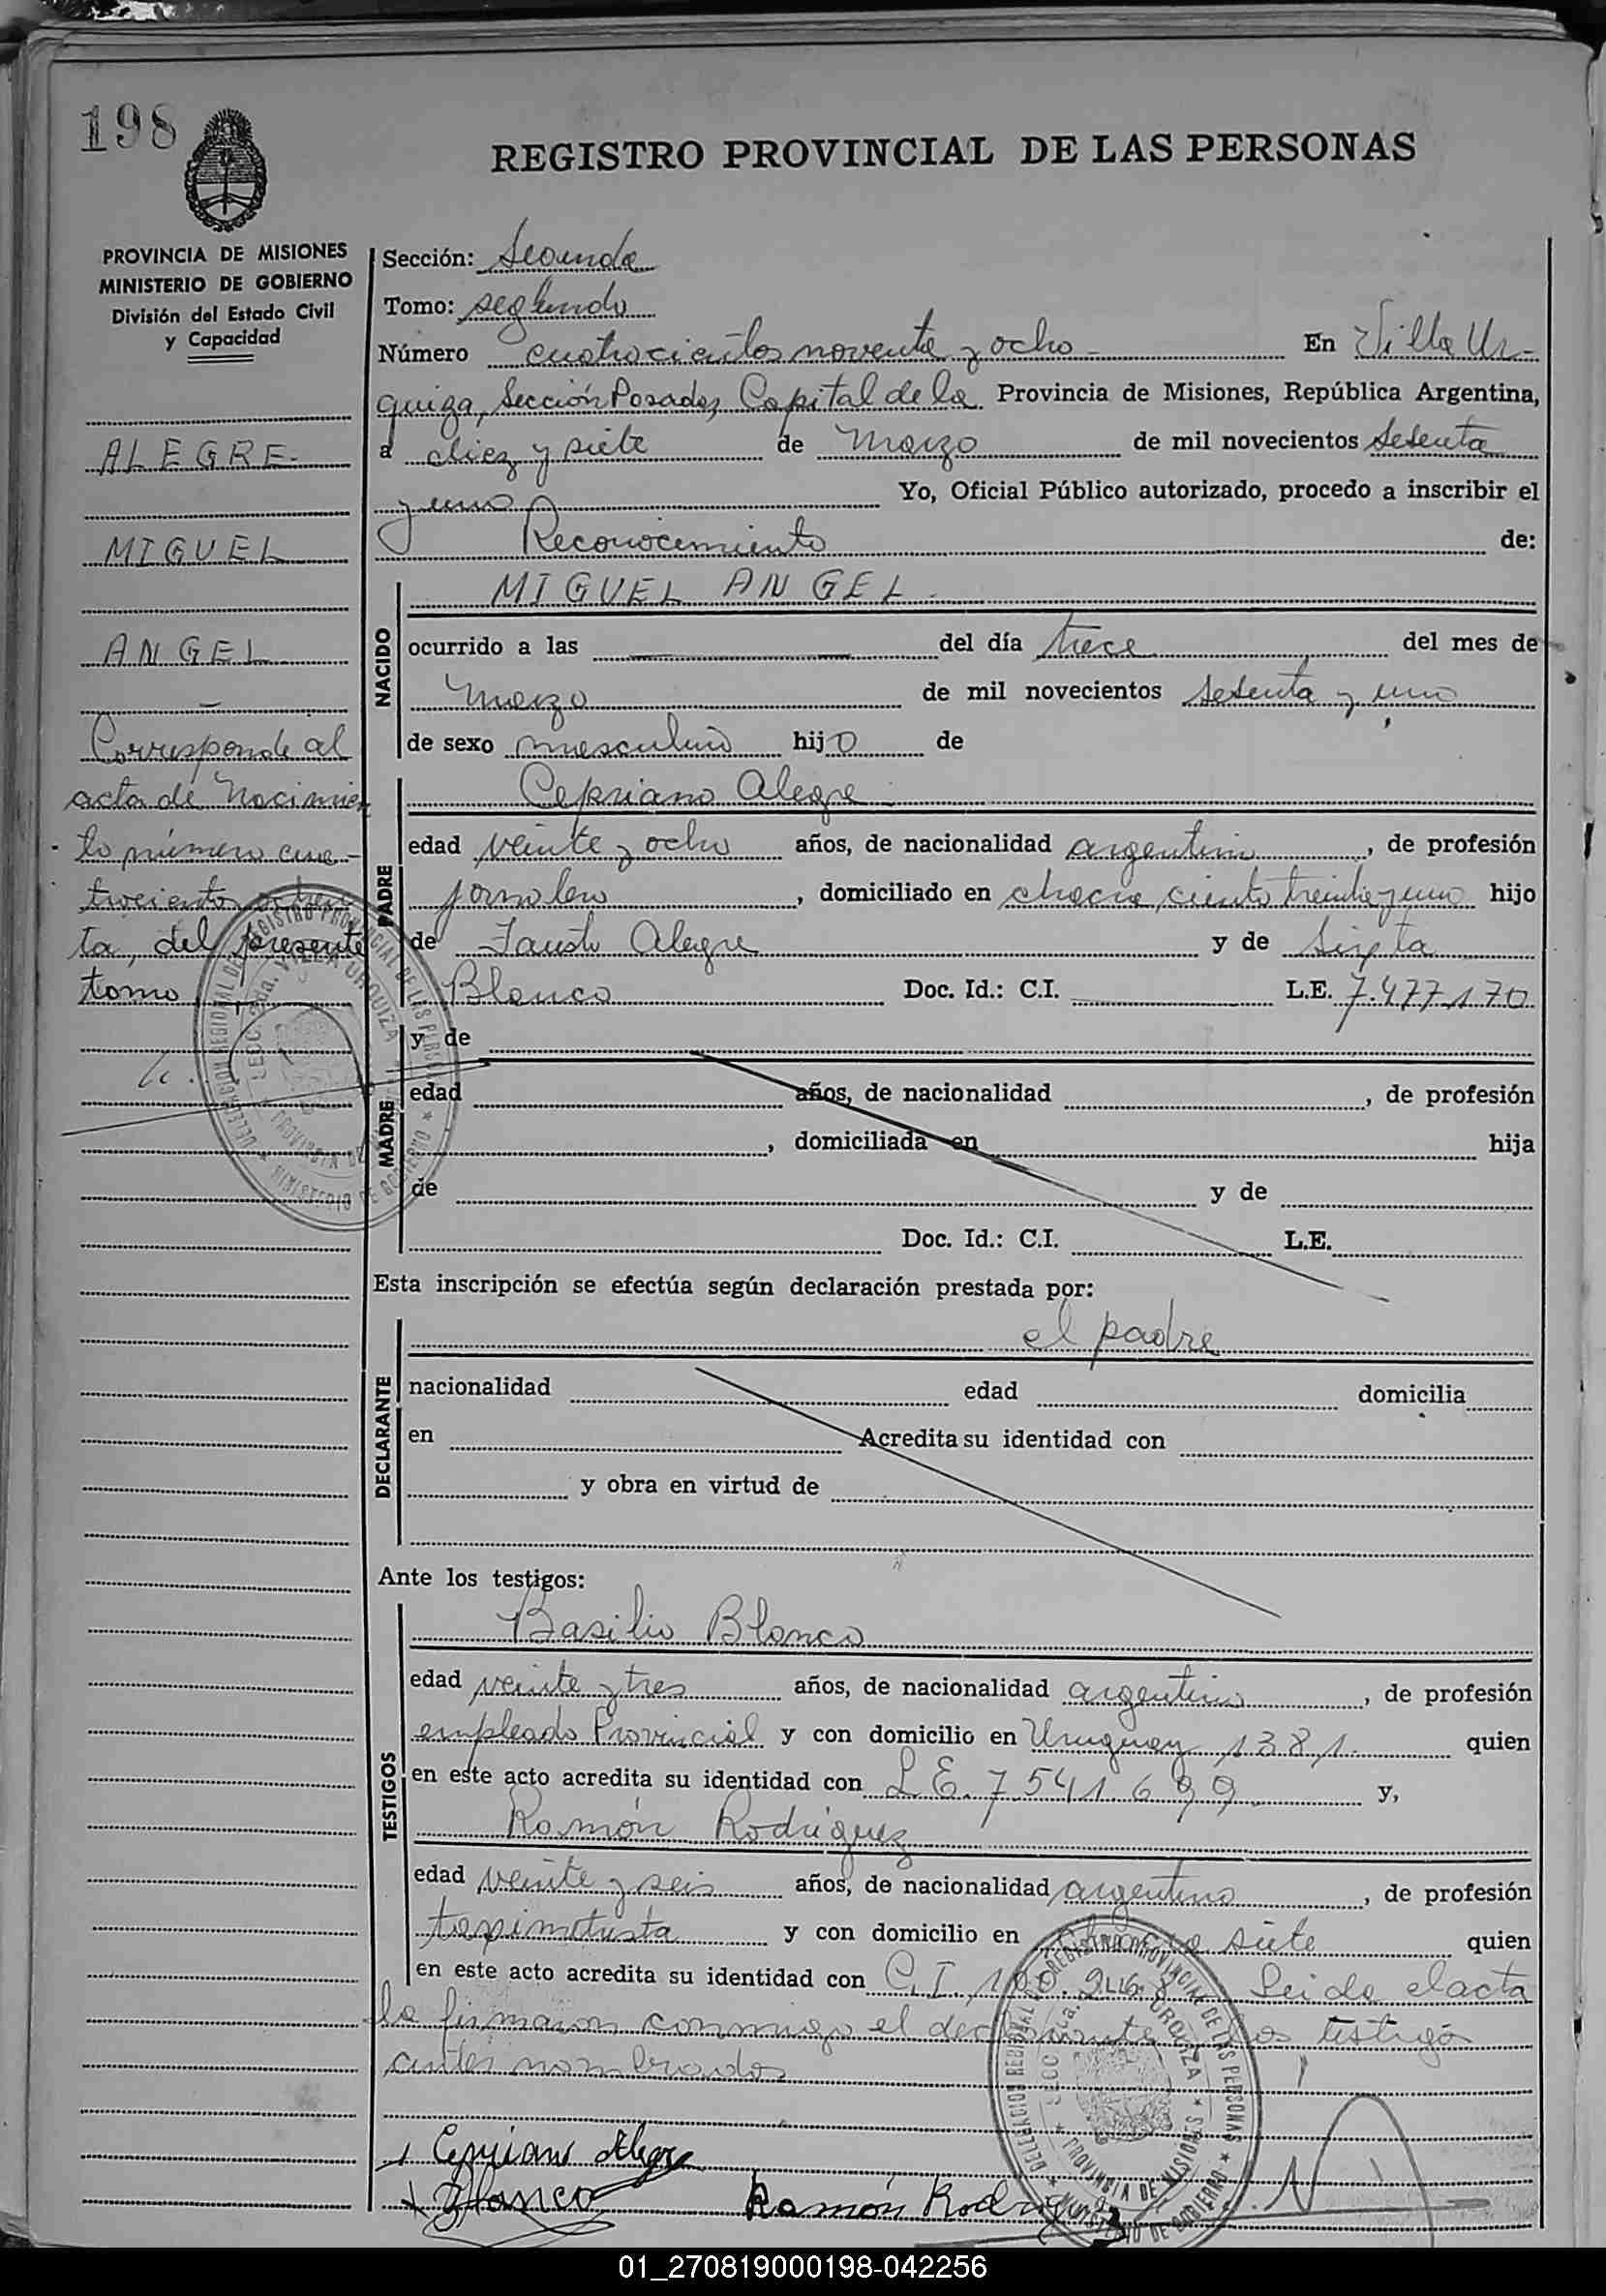 198
REGISTRO PROVINCIAL DE LAS PERSONAS
PROVINCIA DE MISIONES
MINISTERIO DE GOBIERNO
División del Estado Civil
y Capacidad
ALEGRE
MIGUEL
ANGEL
Corresponde al
acta de Nacimien
to número cua-
trocientos ochen
ta, del presente
tomo
Sección: Segunda
Tomo: segundo
Número cuatrocientos noventa y ocho - En Villa Ur-
quiza, Sección Posadas, Capital de la Provincia de Misiones, República Argentina,
a diez y siete de Marzo de mil novecientos setenta
y uno Yo, Oficial Público autorizado, procedo a inscribir el
Reconocimiento de:
NACIDO
MIGUEL ANGEL
ocurrido a las — — del día trece del mes de
Marzo de mil novecientos setenta y uno
de sexo masculino hijo de
PADRE
Cepriano Alegre
edad veinte y ocho años, de nacionalidad argentino, de profesión
jornalero, domiciliado en chacra ciento treinta y uno hijo
de Fausto Alegre y de Sixta
Blanco Doc. Id.: C.I. L.E. 7.477.170
MADRE
y de
edad años, de nacionalidad , de profesión
, domiciliada en hija
de y de
Doc. Id.: C.I. L.E.
Esta inscripción se efectúa según declaración prestada por:
DECLARANTE
el padre
nacionalidad edad domicilia
en Acredita su identidad con
y obra en virtud de
Ante los testigos:
TESTIGOS
Basilio Blanco
edad veinte y tres años, de nacionalidad argentino, de profesión
empleado Provincial y con domicilio en Uruguay 1381 quien
en este acto acredita su identidad con L.E. 7541699 y,
Ramón Rodriguez
edad veinte y seis años, de nacionalidad argentino, de profesión
y con domicilio en siete quien
en este acto acredita su identidad con C.I. Leida el acta
la firmaron conmigo el declarante los testigos
antes nombrados
Cepriano Alegre
Blanco Ramón Rodriguez
DELEGACION REGIONAL DEL REGISTRO PROVINCIAL DE LAS PERSONAS
SECC. 2da. VILLA URQUIZA
PROVINCIA DE MISIONES
MINISTERIO DE GOBIERNO
01_270819000198-042256